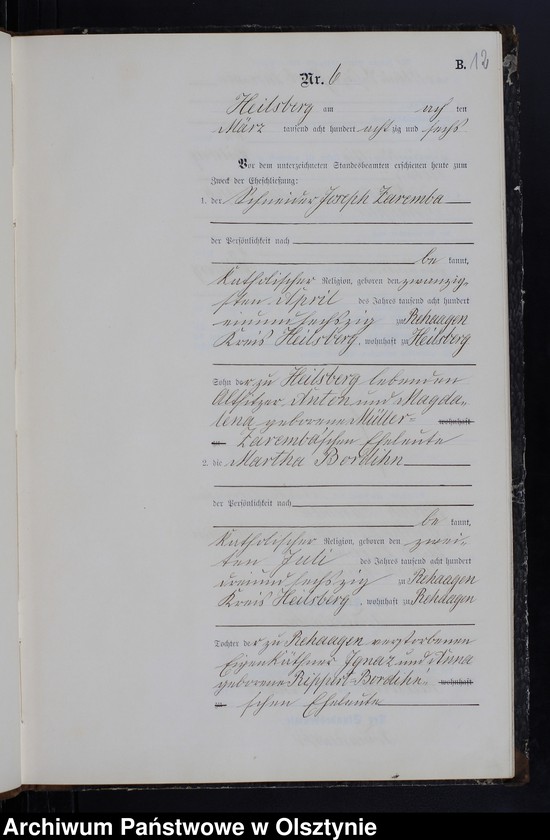 B. 12
Nr. 6
Heilsberg am acht ten
März tausend acht hundert achtzig und sechs
Vor dem unterzeichneten Standesbeamten erschienen heute zum
Zweck der Eheschließung:
1. der Schneider Joseph Zaremba
der Persönlichkeit nach
be kannt,
katholischer Religion, geboren den zwanzig-
sten April des Jahres tausend acht hundert
einundsechszig zu Rehaagen
Kreis Heilsberg, wohnhaft zu Heilsberg
Sohn der zu Heilsberg lebenden
Altsitzer Anton und Magda-
lena geborene Müller- wohnhaft
zu Zaremba'schen Eheleute
2. die Martha Bordihn
der Persönlichkeit nach
be kannt,
katholischer Religion, geboren den zwei-
ten Juli des Jahres tausend acht hundert
dreiundsechszig zu Rehaagen
Kreis Heilsberg, wohnhaft zu Rehaagen
Tochter der zu Rehaagen verstorbenen
Eigenkäthner Ignaz und Anna
geborene Rippert-Bordihn'- wohnhaft
zu schen Eheleute
Archiwum Państwowe w Olsztynie